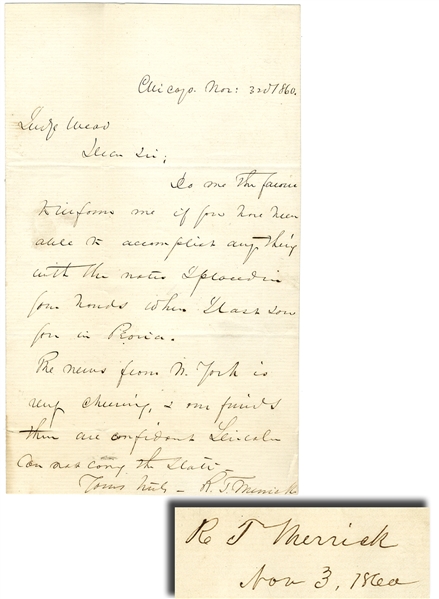 Chicago. Nov: 3rd 1860.
Judge Mead
Dear Sir;
Do me the favor
to inform me if you have been
able to accomplish any thing
with the notes I placed in
your hands when I last saw
you in Peoria.
The news from N. York is
very cheering, & our friends
there are confident Lincoln
can not carry the State–
Yours truly – R. T. Merrick
R T Merrick
Nov 3, 1860